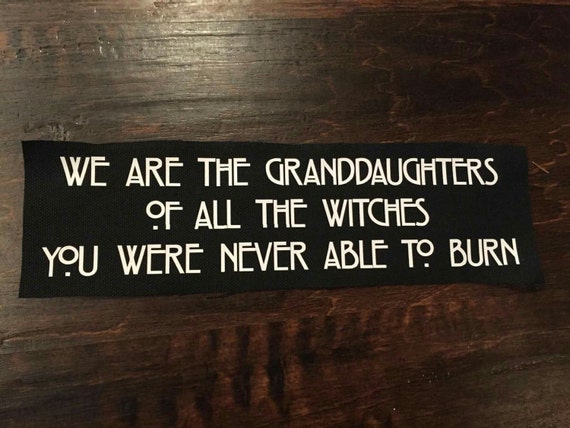 WE ARE THE GRANDDAUGHTERS
OF ALL THE WITCHES
YOU WERE NEVER ABLE TO BURN